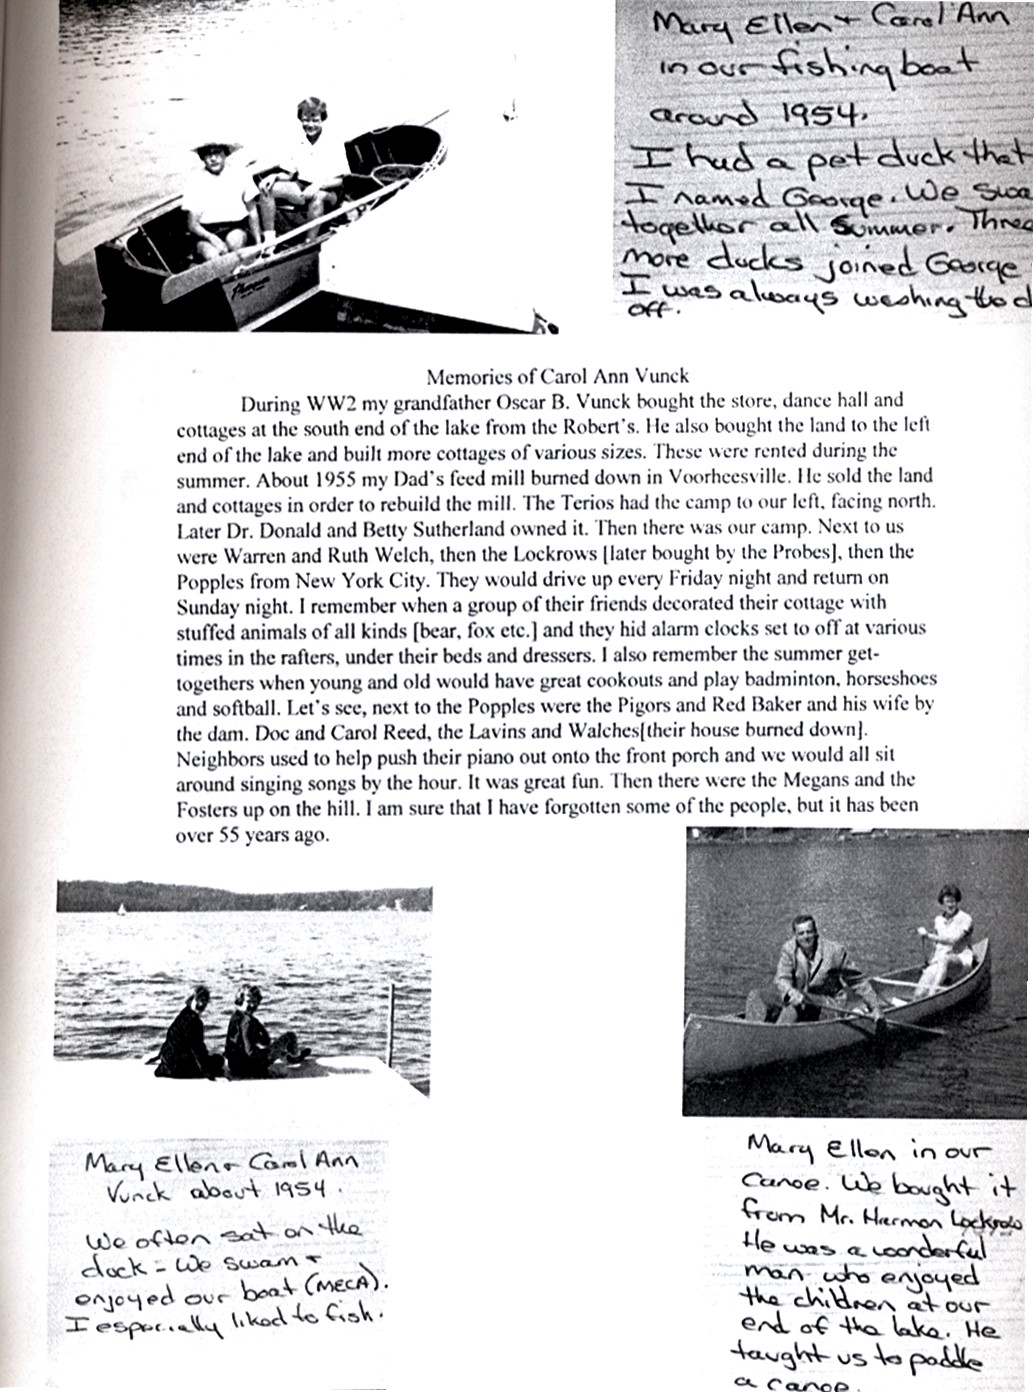 Mary Ellen + Carol Ann
in our fishing boat
around 1954.
I had a pet duck that
I named George. We
together all summer.
more ducks joined George
I was always washing the
off.
Memories of Carol Ann Vunck
During WW2 my grandfather Oscar B. Vunck bought the store, dance hall and
cottages at the south end of the lake from the Robert's. He also bought the land to the left
end of the lake and built more cottages of various sizes. These were rented during the
summer. About 1955 my Dad's feed mill burned down in Voorheesville. He sold the land
and cottages in order to rebuild the mill. The Terios had the camp to our left, facing north.
Later Dr. Donald and Betty Sutherland owned it. Then there was our camp. Next to us
were Warren and Ruth Welch, then the Lockrows [later bought by the Probes], then the
Popples from New York City. They would drive up every Friday night and return on
Sunday night. I remember when a group of their friends decorated their cottage with
stuffed animals of all kinds [bear, fox etc.] and they hid alarm clocks set to off at various
times in the rafters, under their beds and dressers. I also remember the summer get-
togethers when young and old would have great cookouts and play badminton, horseshoes
and softball. Let's see, next to the Popples were the Pigors and Red Baker and his wife by
the dam. Doc and Carol Reed, the Lavins and Walches[their house burned down].
Neighbors used to help push their piano out onto the front porch and we would all sit
around singing songs by the hour. It was great fun. Then there were the Megans and the
Fosters up on the hill. I am sure that I have forgotten some of the people, but it has been
over 55 years ago.
Mary Ellen + Carol Ann
Vunck about 1954.
We often sat on the
dock - We swam +
enjoyed our boat (MECA).
I especially liked to fish.
Mary Ellen in our
Canoe. We bought it
from Mr. Harmon Lockrow
He was a wonderful
man who enjoyed
the children at our
end of the lake. He
taught us to paddle
a canoe.